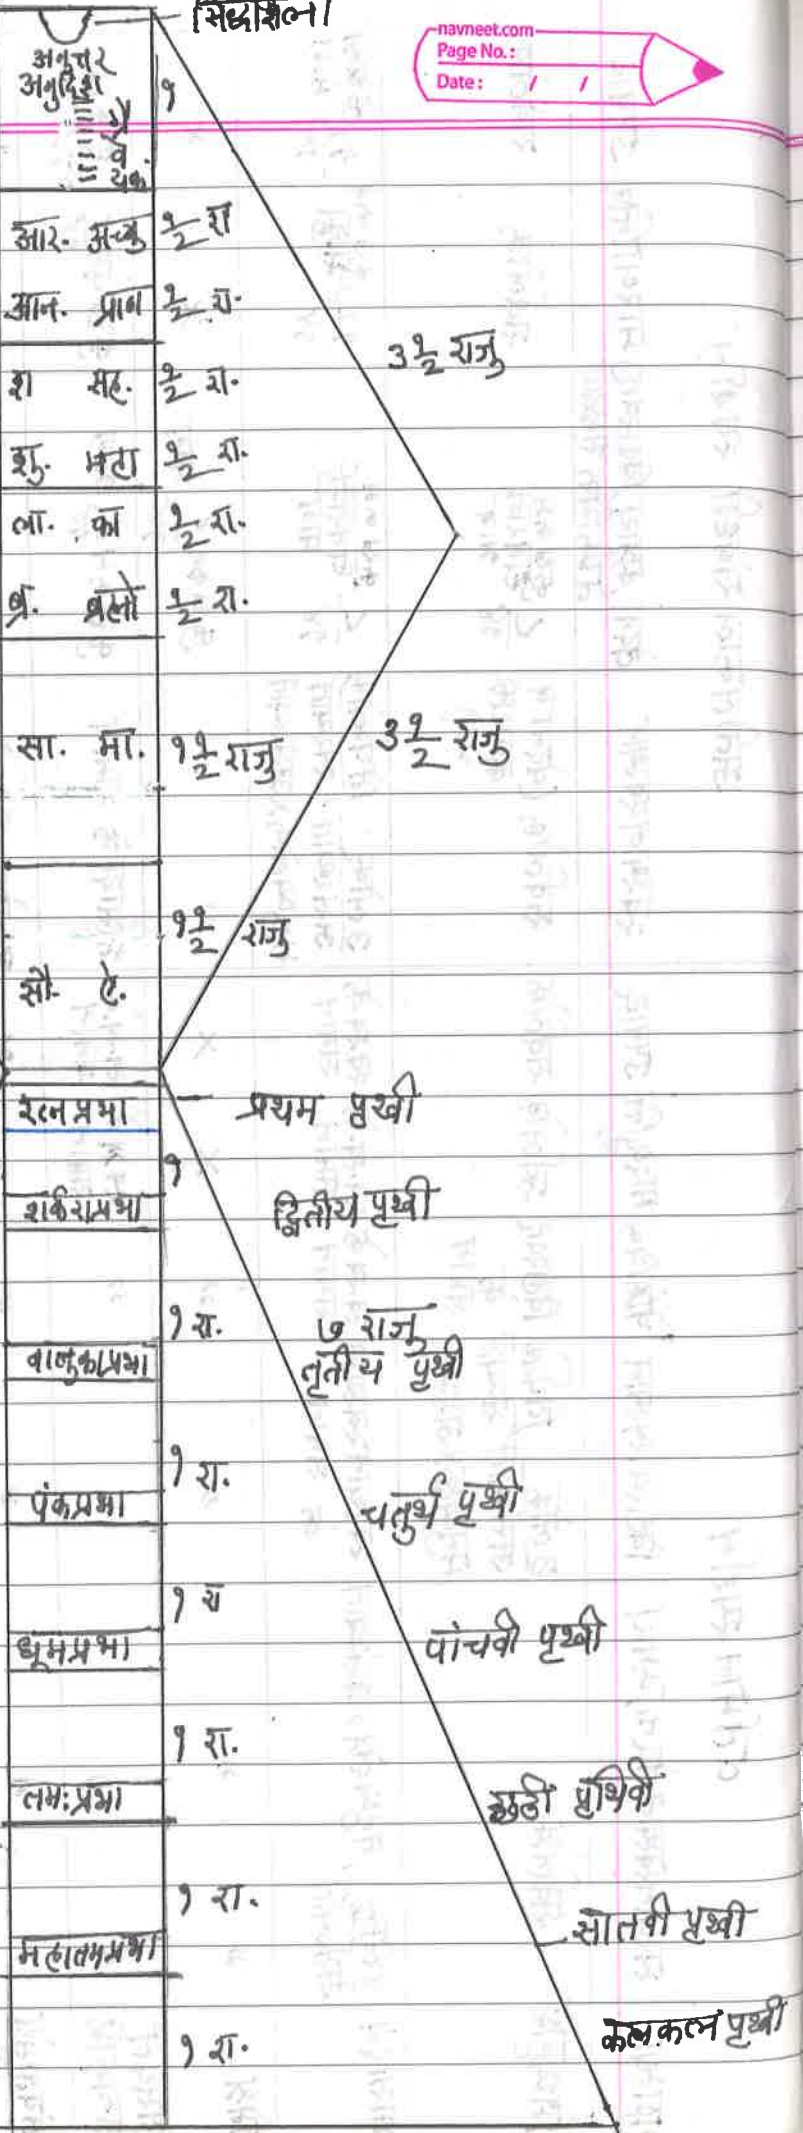 सिद्धशिला
navneet.com
Page No.:
Date: / /
अनुत्तर
अनुदिश
ग्रै
वे
यक
१
आर. अच्यु १/२ रा
आन. प्राण १/२ रा.
श सह. १/२ रा.
३ १/२ राजु
शु. महा १/२ रा.
ला. का १/२ रा.
ब्र. ब्रह्मो १/२ रा.
सा. मा. १ १/२ राजु
३ १/२ राजु
१ १/२ राजु
सौ. ऐ.
रत्नप्रभा
प्रथम पृथ्वी
१
शर्कराप्रभा
द्वितीय पृथ्वी
१ रा.
७ राजु
वालुकाप्रभा
तृतीय पृथ्वी
१ रा.
पंकप्रभा
चतुर्थ पृथ्वी
१ रा
धूमप्रभा
पांचवी पृथ्वी
१ रा.
तमःप्रभा
छठी पृथिवी
१ रा.
महातमप्रभा
सातवी पृथ्वी
कलकल पृथ्वी
१ रा.